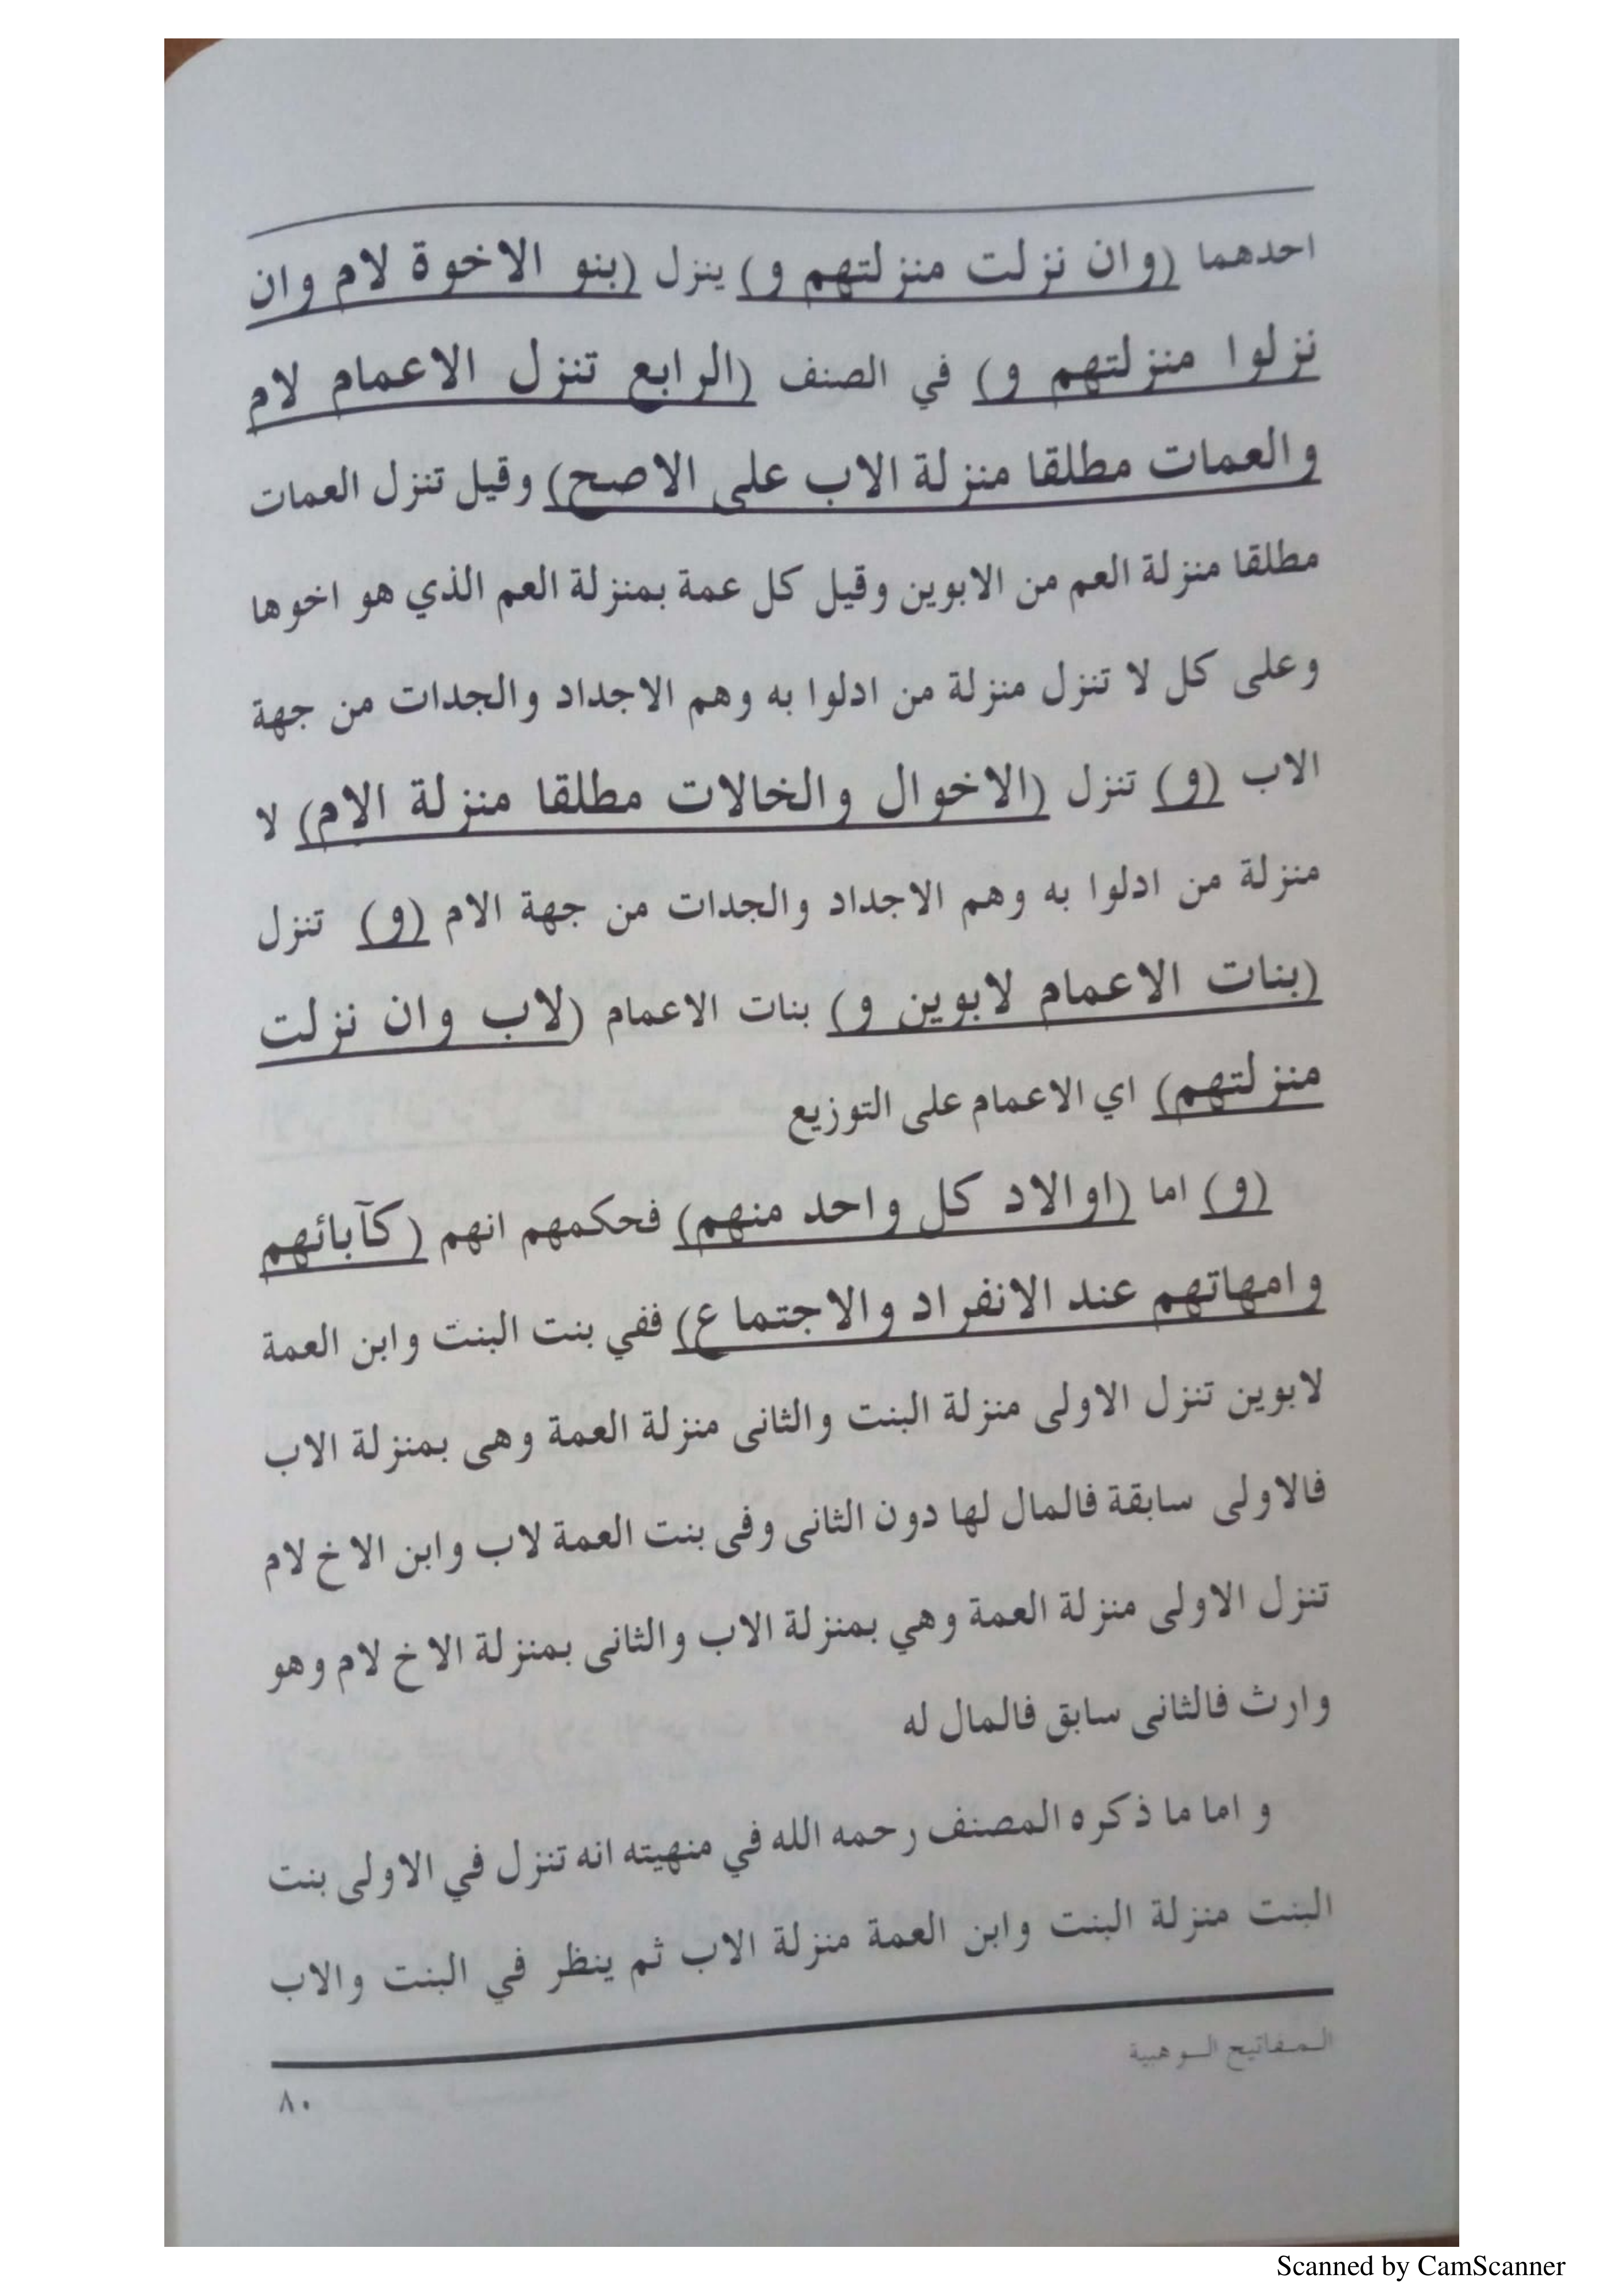 احدهما (وان نزلت منزلتهم و) ينزل (بنو الاخوة لام وان
نزلوا منزلتهم و) في الصنف (الرابع تنزل الاعمام لام
والعمات مطلقا منزلة الاب على الاصح) وقيل تنزل العمات
مطلقا منزلة العم من الابوين وقيل كل عمة بمنزلة العم الذي هو اخوها
وعلى كل لا تنزل منزلة من ادلوا به وهم الاجداد والجدات من جهة
الاب (و) تنزل (الاخوال والخالات مطلقا منزلة الام) لا
منزلة من ادلوا به وهم الاجداد والجدات من جهة الام (و) تنزل
(بنات الاعمام لابوين و) بنات الاعمام (لاب وان نزلت
منزلتهم) اي الاعمام على التوزيع
(و) اما (اوالاد كل واحد منهم) فحكمهم انهم (كآبائهم
وامهاتهم عند الانفراد والاجتماع) ففي بنت البنت وابن العمة
لابوين تنزل الاولى منزلة البنت والثانى منزلة العمة وهى بمنزلة الاب
فالاولى سابقة فالمال لها دون الثانى وفى بنت العمة لاب وابن الاخ لام
تنزل الاولى منزلة العمة وهي بمنزلة الاب والثانى بمنزلة الاخ لام وهو
وارث فالثانى سابق فالمال له
و اما ما ذكره المصنف رحمه الله في منهيته انه تنزل في الاولى بنت
البنت منزلة البنت وابن العمة منزلة الاب ثم ينظر في البنت والاب
المفاتيح الوهبية
٨٠
Scanned by CamScanner